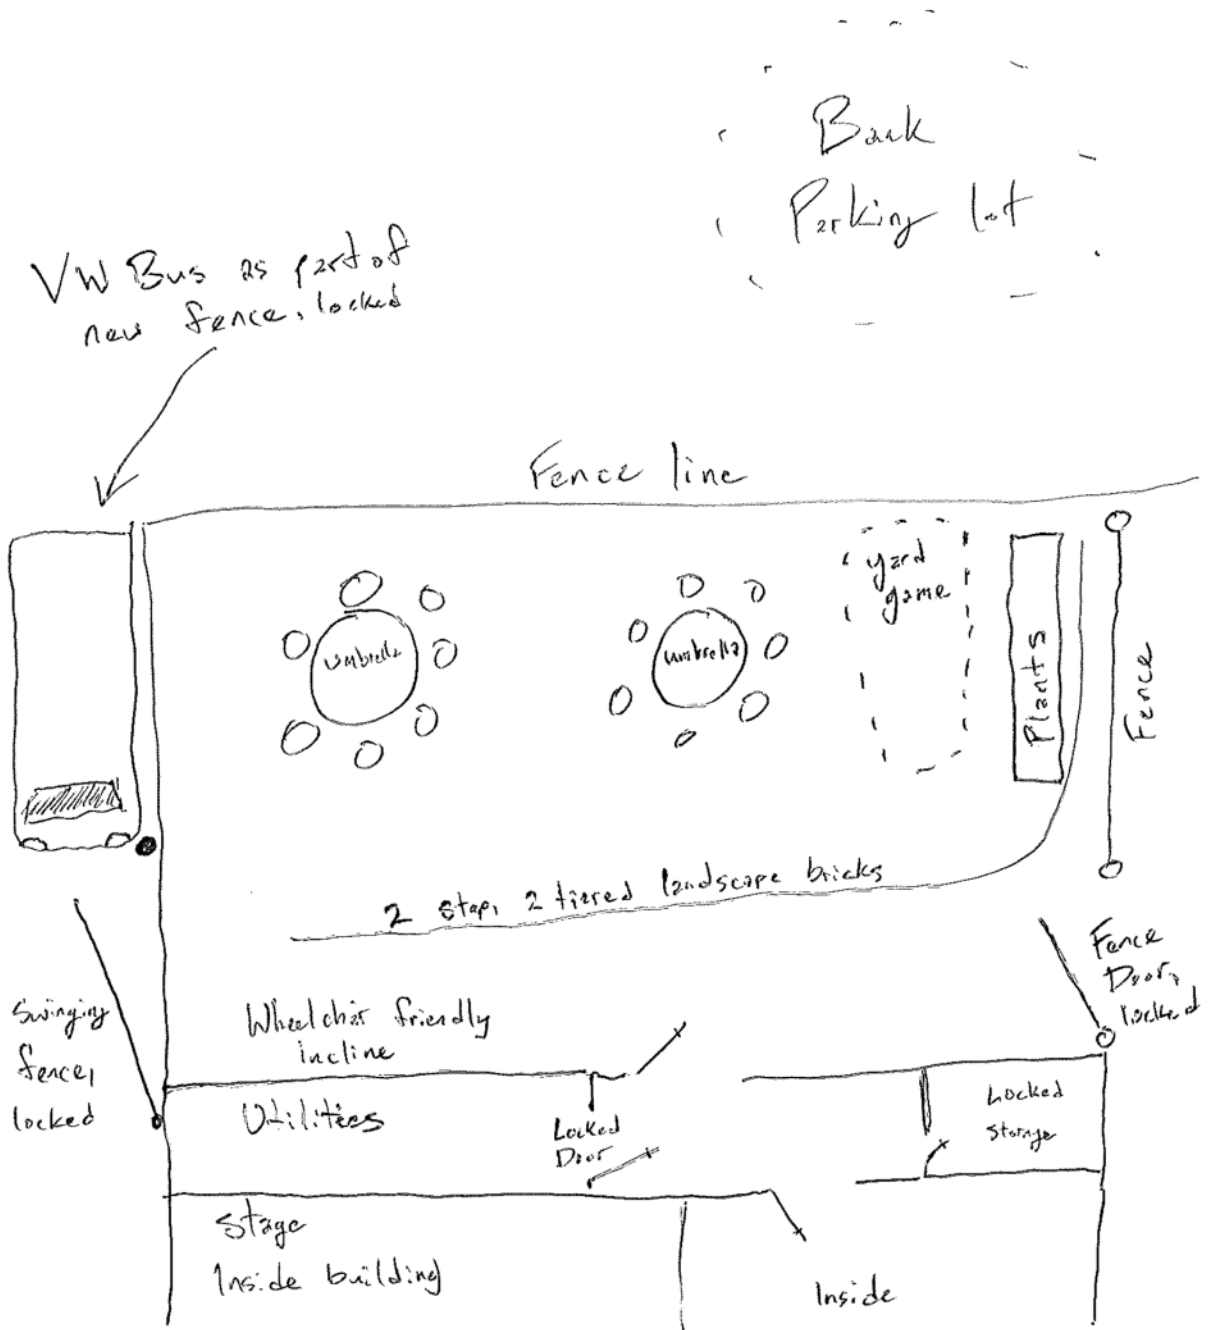 Back
Parking lot
VW Bus as part of
new fence, locked
Fence line
yard
game
umbrella
umbrella
Plants
Fence
2 step, 2 tiered landscape bricks
Fence
Door,
locked
Swinging
fence,
locked
Wheelchair friendly
incline
Utilities
Locked
Door
Locked
Storage
Stage
Inside building
Inside